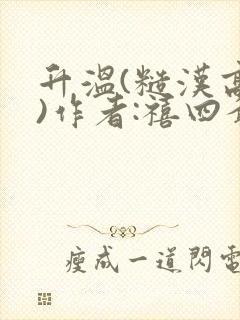 升溫(糙漢高
)作者:禧四
瘦成一道閃電